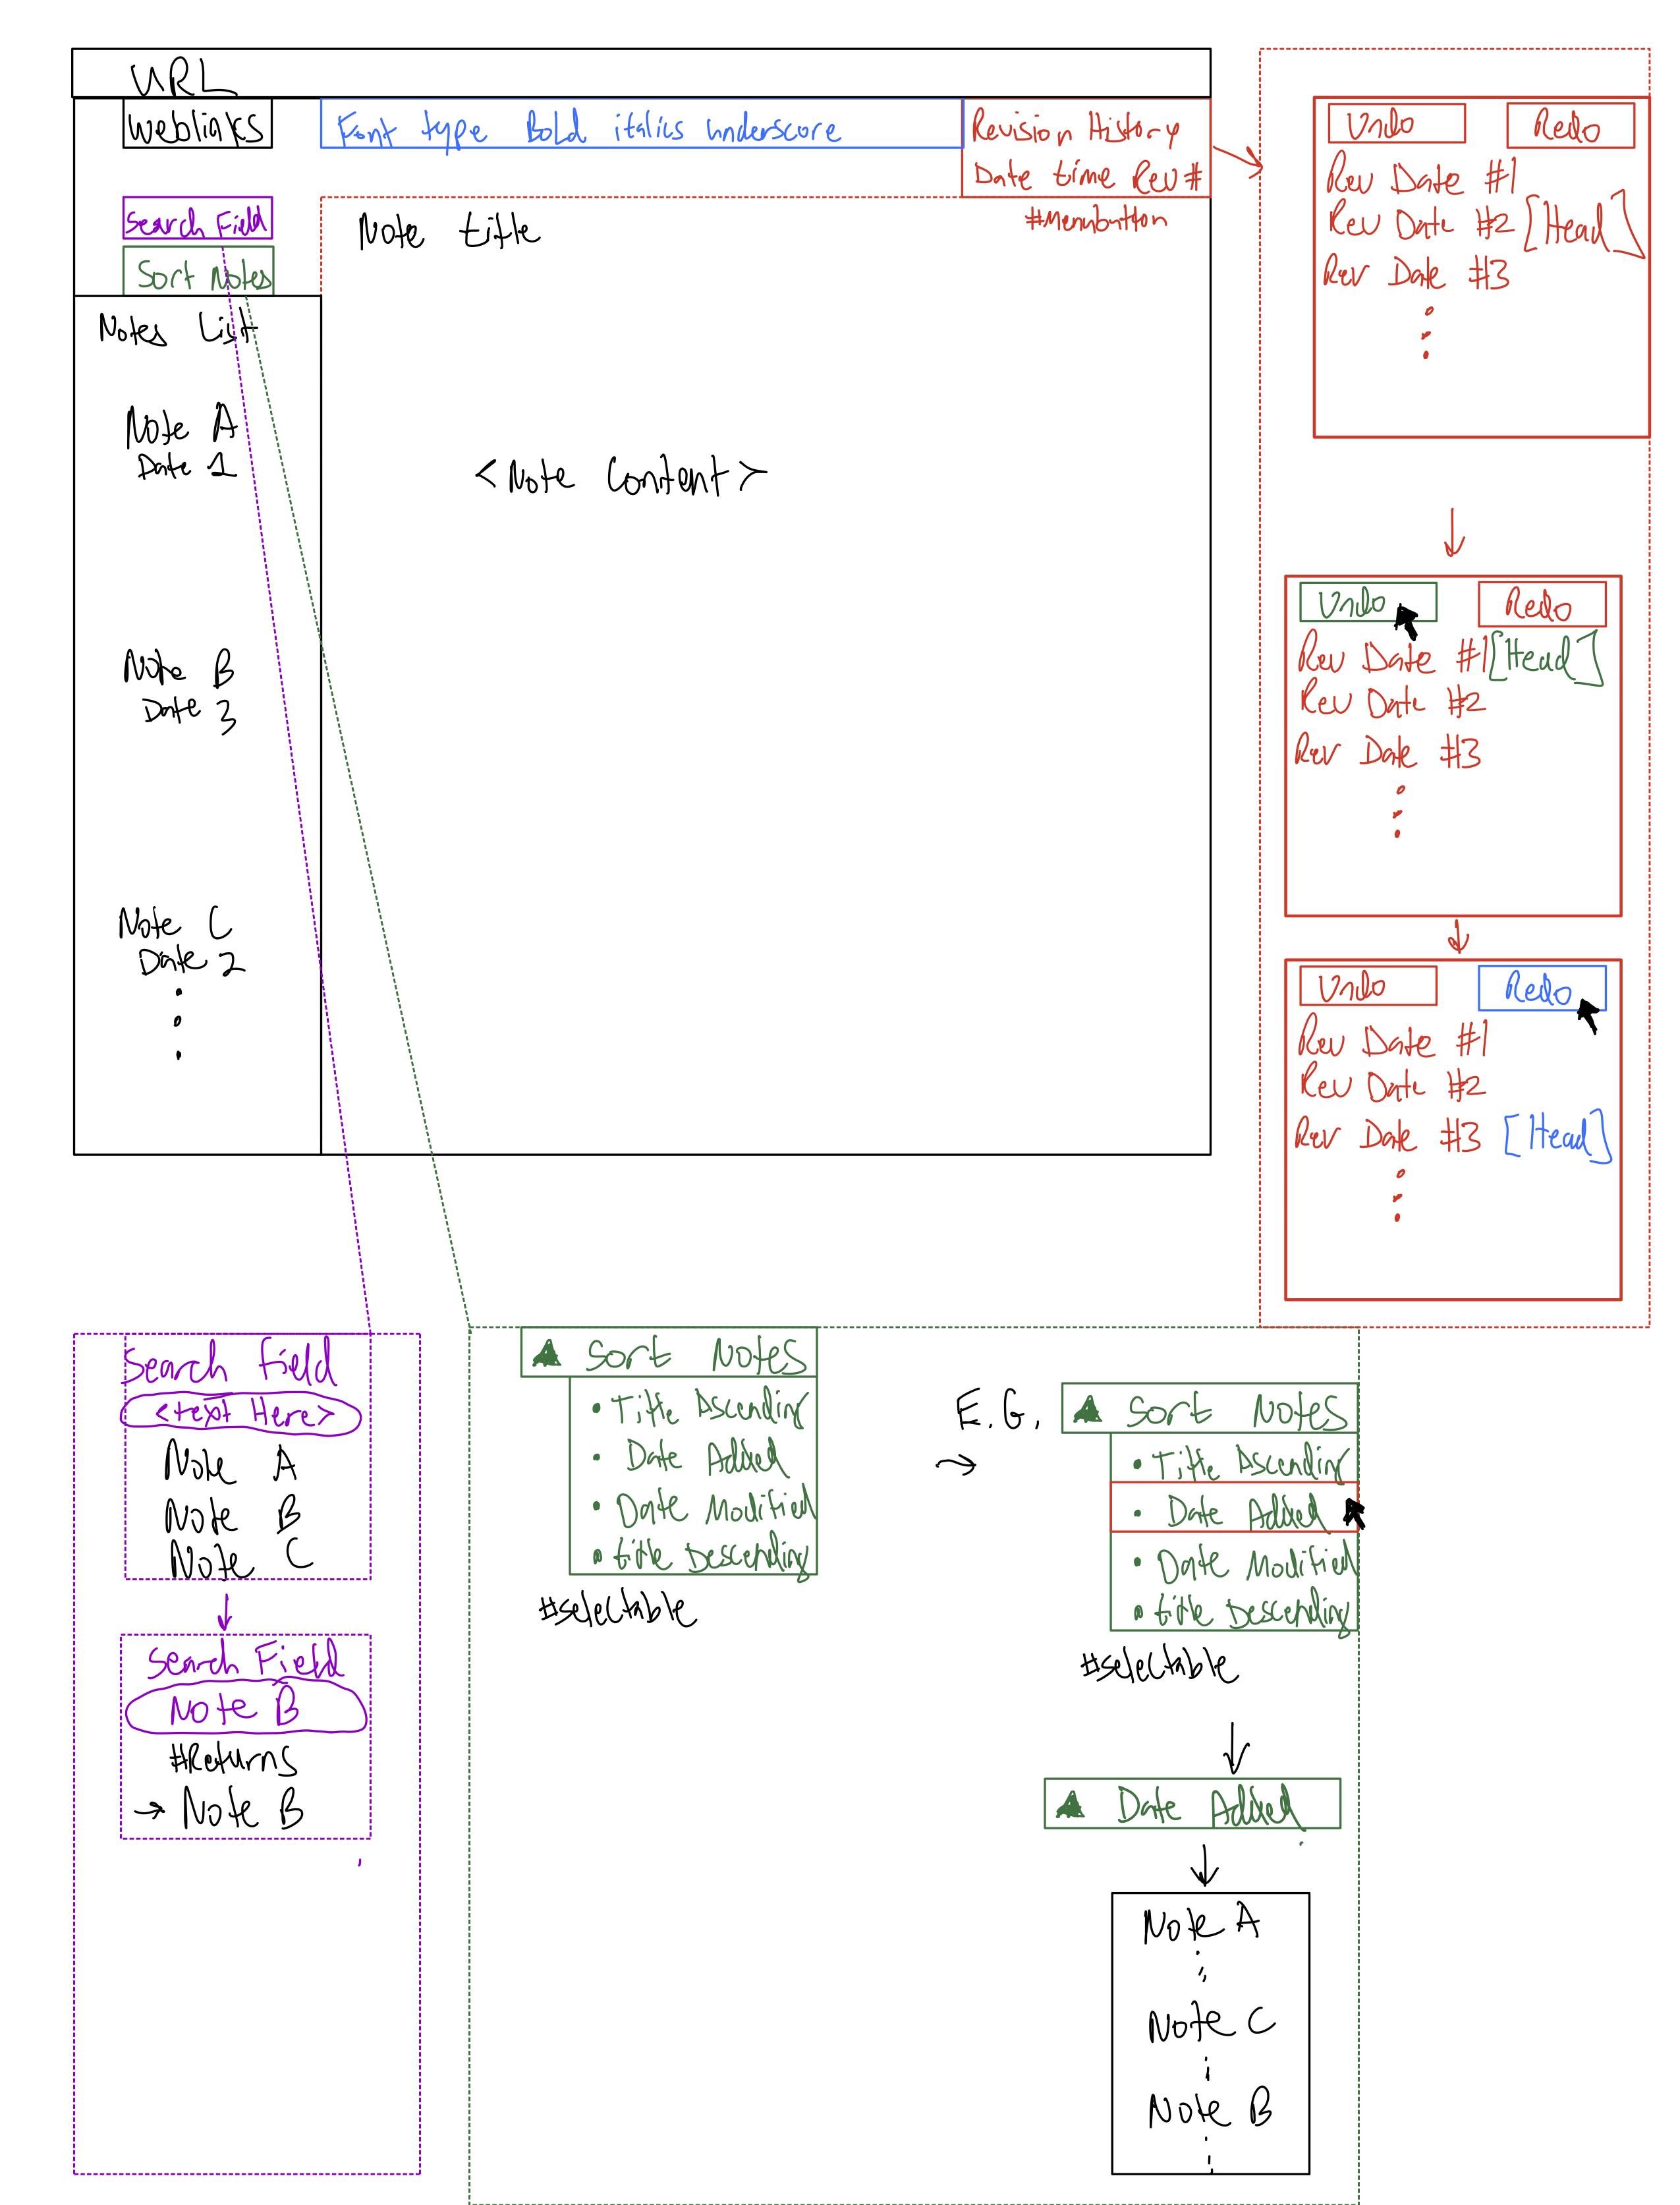 URL
Weblinks
Font type Bold italics underscore
Revision History
Date time Rev #
#Menubutton
Search Field
Sort Notes
Note title
Notes List
Note A
Date 1
<Note Content>
Note B
Date 3
Note C
Date 2
Undo Redo
Rev Date #1
Rev Date #2 [Head]
Rev Date #3
Undo Redo
Rev Date #1 [Head]
Rev Date #2
Rev Date #3
Undo Redo
Rev Date #1
Rev Date #2
Rev Date #3 [Head]
Search Field
<text Here>
Note A
Note B
Note C
Search Field
Note B
#Returns
→ Note B
Sort Notes
• Title Ascending
• Date Added
• Date Modified
• title Descending
#selectable
E.G.
Sort Notes
• Title Ascending
• Date Added
• Date Modified
• title Descending
#selectable
Date Added
Note A
Note C
Note B